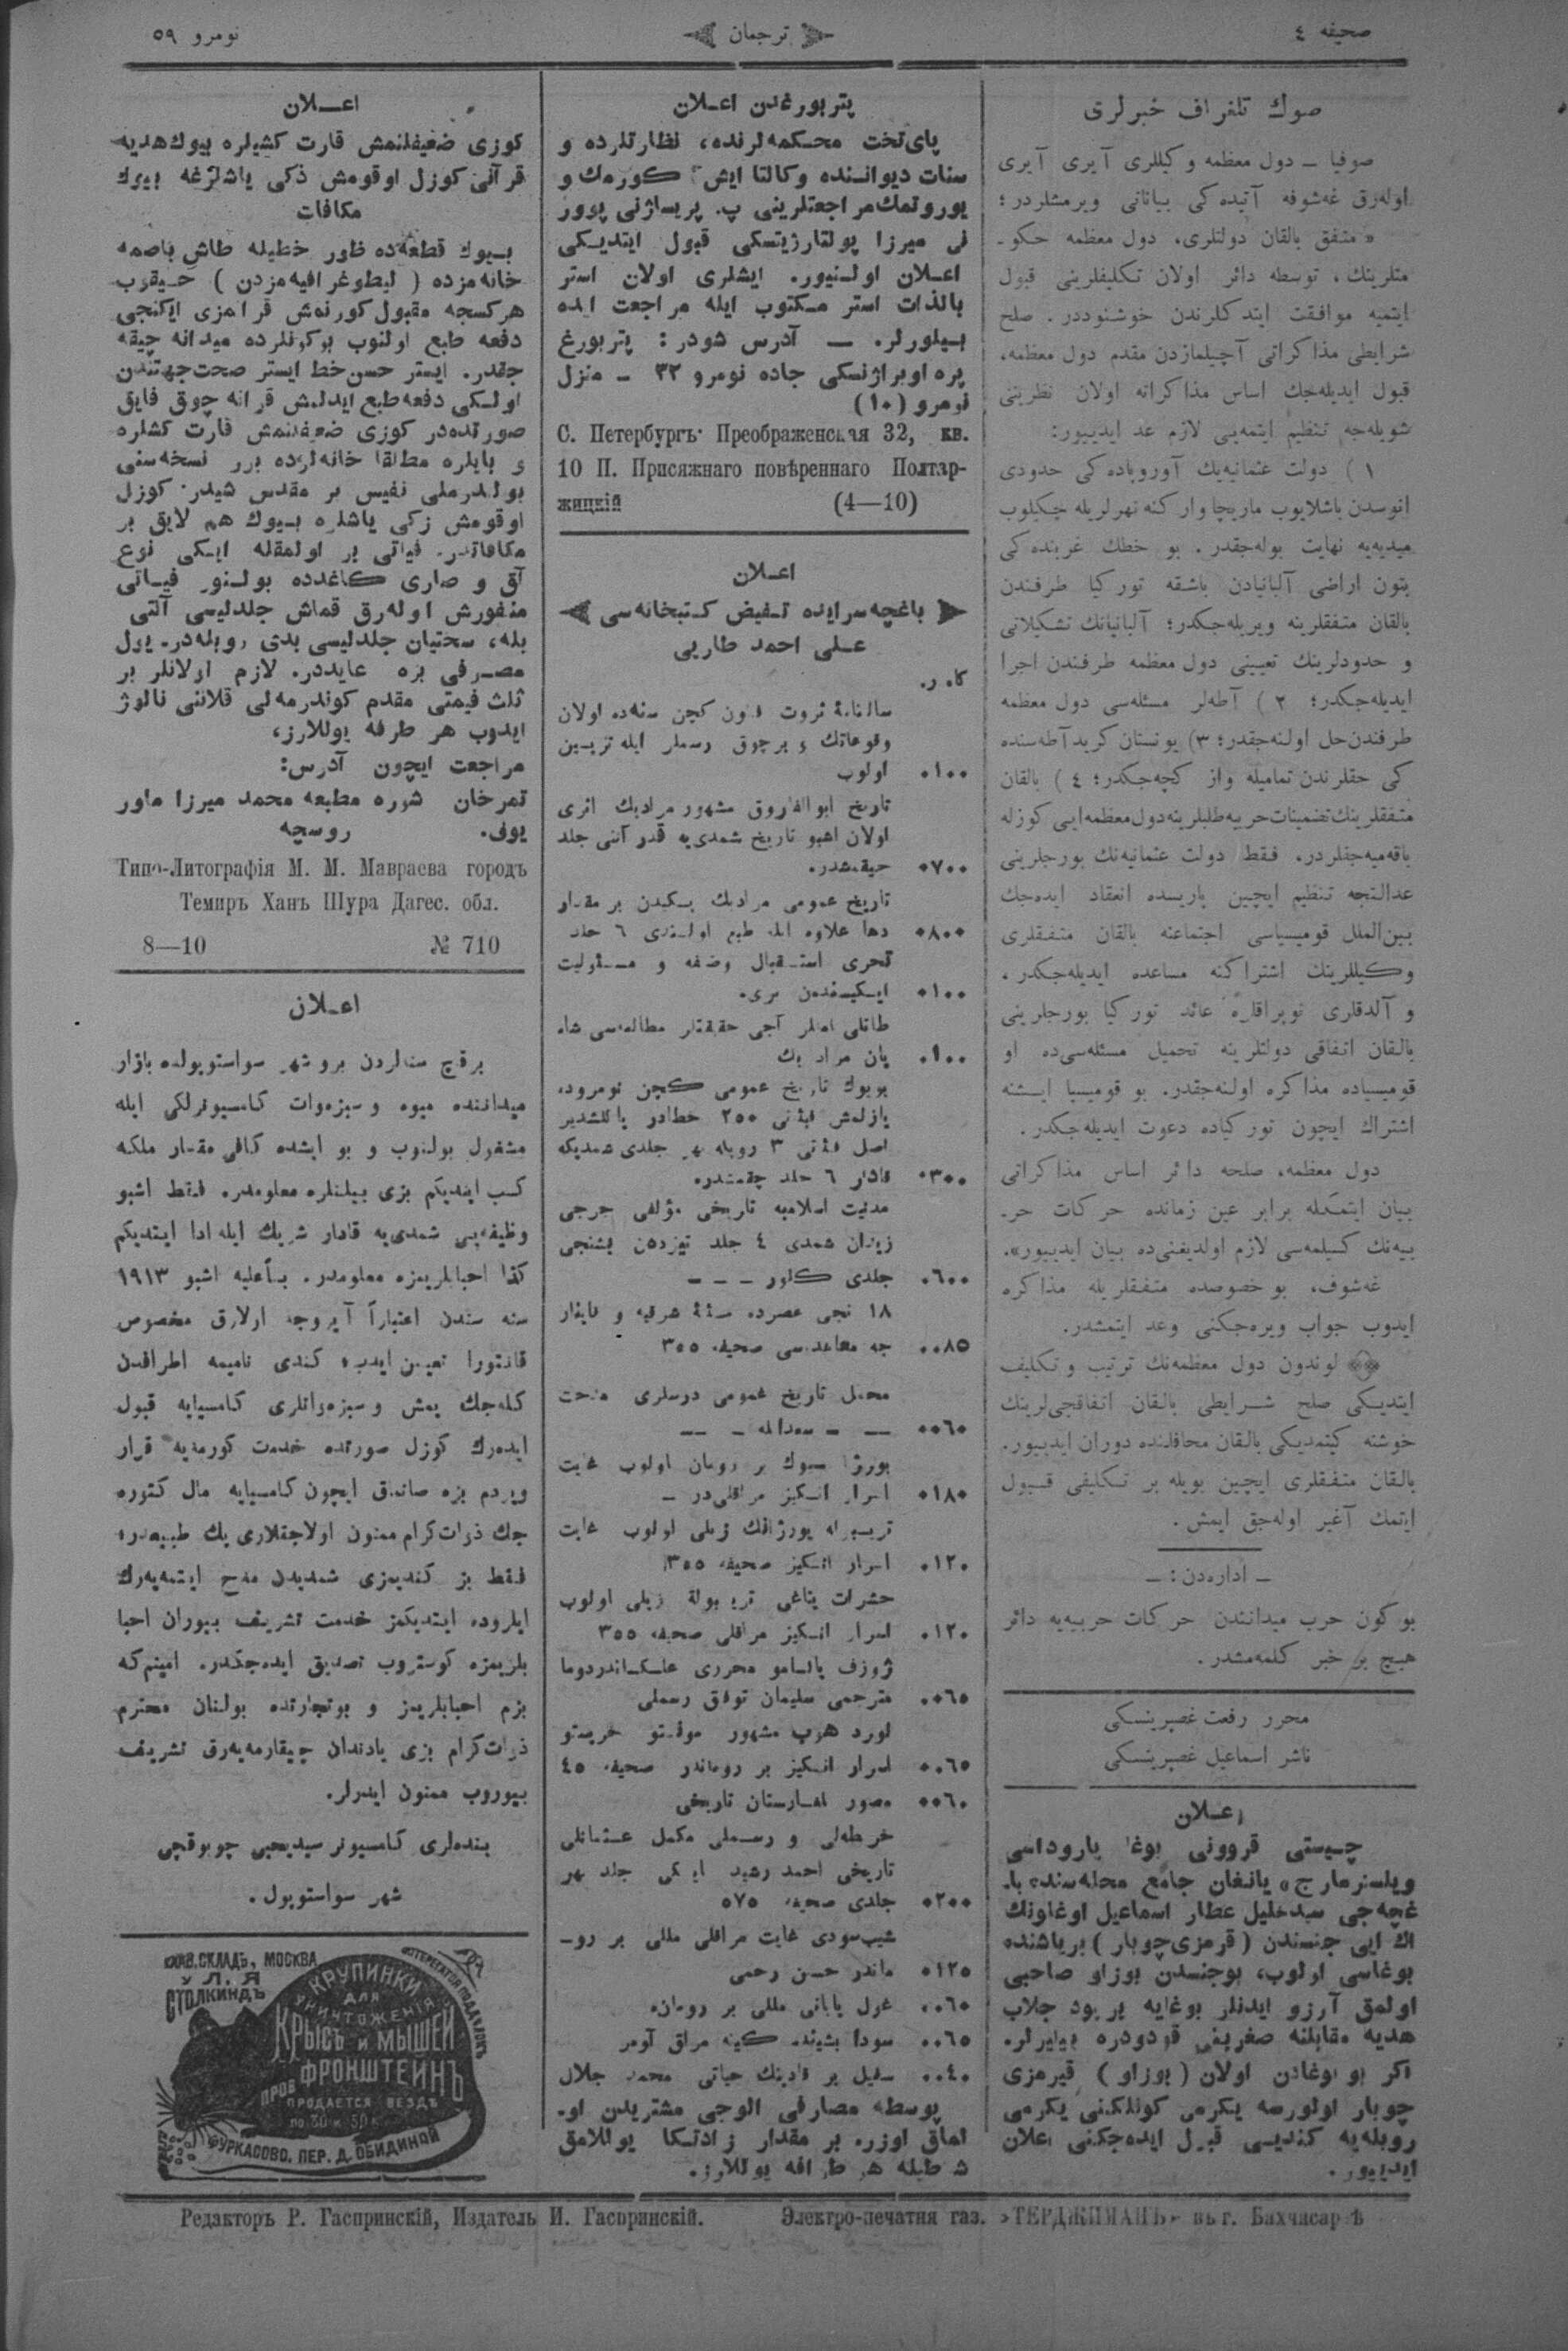 صحیفه ٤
ترجمان
نومرو ٥٩
صوك تلغراف خبرلری
صوفیا ــ دول معظمه وكیللری آیری آیری
اوله‌رق غه‌شوفه آتیده‌كی بیاناتی ویرمشلردر؛
« متفق بالقان دولتلری، دول معظمه حكو-
متلرینك، توسطه دائر اولان تكلیفلرینی قبول
ایتمیه موافقت ایتدكلرندن خوشنوددر. صلح
شرایطی مذاكراتی آچیلمازدن مقدم دول معظمه،
قبول ایدیله‌جك اساس مذاكراته اولان نظرینی
شویله‌جه تنظیم ایتمه‌یی لازم عد ایدییور:
١ ) دولت عثمانیه‌نك آوروپاده‌كی حدودی
انوسدن باشلایوب ماریچا وارکنه نهرلریله چكیلوب
میدیه‌یه نهایت بوله‌جقدر. بو خطك غربنده‌كی
بتون اراضی آلبانیادن باشقه توركیا طرفندن
بالقان متفقلرینه ویریله‌جكدر؛ آلبانیانك تشكیلاتی
و حدودلرینك تعیینی دول معظمه طرفندن اجرا
ایدیله‌جكدر؛ ٢ ) آطه‌لر مسئله‌سی دول معظمه
طرفندن حل اولنه‌جقدر؛ ٣) یونستان كرید آطه‌سنده
كی حقلرندن تمامیله واز كچه‌جكدر؛ ٤ ) بالقان
متفقلرینك تضمینات حربیه طلبلرینه دول معظمه ایی كوزله
باقه‌میه‌جقلردر. فقط دولت عثمانیه‌نك بورجلرینی
عدالتجه تنظیم ایچین پاریسده انعقاد ایده‌جك
بین‌الملل قومیسیاسی اجتماعنه بالقان متفقلری
وكیللرینك اشتراكنه مساعده ایدیله‌جكدر.
و آلدقلری توپراقلره عائد توركیا بورجلرینی
بالقان اتفاقی دولتلرینه تحمیل مسئله‌سی‌ده او
قومیسیاده مذاكره اولنه‌جقدر. بو قومیسیا ایشنه
اشتراك ایچون توركیاده دعوت ایدیله‌جكدر.
دول معظمه، صلحه دائر اساس مذاكراتی
بیان ایتمكله برابر عین زمانده حركات حر-
بیه‌نك كسیلمه‌سی لازم اولدیغنی‌ده بیان ایدییور».
غه‌شوف، بو خصوصده متفقلریله مذاكره
ایدوب جواب ویره‌جكنی وعد ایتمشدر.
لوندون دول معظمه‌نك ترتیب و تكلیف
ایتدیكی صلح شرایطی بالقان اتفاقجی‌لرینك
خوشنه كیتمدیكی بالقان محافلنده دوران ایدییور.
بالقان متفقلری ایچین بویله بر تكلیفی قبول
ایتمك آغیر اوله‌جق ایمش.
ــ اداره‌دن: ــ
بوكون حرب میدانندن حركات حربیه‌یه دائر
هیچ بر خبر كلمه‌مشدر.
محرر رفعت غصپرینسكی
ناشر اسماعیل غصپرینسكی
اعلان
چیستی قروونی بوغا یاروداسی
یانغان جامع محله‌سنده با-
غچه‌جی سیدخلیل عطار اسماعیل اوغلونك
اك ایی جنسندن (قرمزی چوبار) بر یاشنده
بوغاسی اولوب، بوجنسدن بوزاو صاحبی
اولمق آرزو ایدنلر بوغایه بر پود جلاب
هدیه مقابلنه
اكر بو بوغادن اولان (بوزاو) قیرمزی
چوبار اولورسه یكرمی كونلكنی یكرمی
روبله‌یه كندیسی قبول ایده‌جكنی اعلان
ایدییور.
پتربورغدن اعلان
پای‌تخت محكمه‌لرنده، نظارتلرده و
سنات دیواننده وكالتا ایش كورمك و
یوروتمك مراجعتلرینی پ. پریساژنی پوور
نی میرزا پولتارژیتسكی قبول ایتدیكی
اعلان اولنیور. ایشلری اولان استر
بالذات استر مكتوب ایله مراجعت ایده
بیلورلر. ــ آدرس شودر: پتربورغ
پره‌اوبراژنسكی جاده نومرو ٣٢ ــ منزل
نومرو (١٠)
С. Петербургъ Преображенская 32, кв.
10 П. Присяжнаго повѣреннаго Полтар-
жицкій (4—10)
اعلان
باغچه‌سرایده تفیض كتبخانه‌سی
علی احمد طاریی
كا. ر.
سالنامهٔ ثروت فنون كچن سنه‌ده اولان
وقوعاتك و برچوق رسملر ایله تزیین
اولوب ٠١٠٠
تاریخ ابوالفاروق مشهور مرادبك اثری
اولان اشبو تاریخ شمدی‌یه قدر آلتی جلد
چیقمشدر. ٠٧٠٠
تاریخ عمومی مرادبك یكیدن بر مقدار
دها علاوه ایله طبع اولندی ٦ جلد ٠٨٠٠
تحری استقبال وظیفه و مسئولیت
ایكیسندن بری. ٠١٠٠
طاتلی املر آجی حقیقتلر مطالعه‌سی شاه
یان مراد بك ٠١٠٠
بویوك تاریخ عمومی كچن نومروده
یازلمش فیأتی ٢٥٠ خطادر یاكلشدیر
اصل فیأتی ٣ روبله بهر جلدی شمدیكه
قادار ٦ جلد چقمشدر. ٠٣٠٠
مدنیت اسلامیه تاریخی مؤلفی جرجی
زیدان شمدی ٤ جلد تیزدن بشنجی
جلدی كلور ــ ــ ــ ٠٦٠٠
١٨ نجی عصرده مسئلهٔ شرقیه و قاینار
جه معاهده‌سی صحیفه ٣٥٥ ٠٠٨٥
محمل تاریخ عمومی درسلری مدحت
سعدالله ٠٠٦٠
بورژا بیوك بر رومان اولوب غایت
اسرار انگیز مراقلی‌در ــ ٠١٨٠
تریبوله بورژانك زیلی اولوب غایت
اسرار انگیز صحیفه ٣٥٥ ٠١٢٠
حشرات یتاغی تریبولة زیلی اولوب
اسرار انگیز مراقلی صحیفه ٣٥٥ ٠١٢٠
ژوزف بالسامو محرری علكساندردوما
مترجمی سلیمان توفیق رسملی ٠٠٦٥
لورد هوپ مشهور مونتو خریستو
اسرار انگیز بر روماندر صحیفه ٤٥ ٠٠٦٥
مصور تاریخی ٠٠٦٠
خریطه‌لی و رسملی مكمل عثمانلی
تاریخی احمد رشید ایكی جلد بهر
جلدی صحیفه ٥٧٥ ٠٢٠٠
شیب‌سودی غایت مراقلی مللی بر رو-
ماندر حسن رحمی ٠١٢٥
غول یابانی مللی بر رومان. ٠٠٦٠
سودا پشینده كیتمه مراق آومر ٠٠٦٥
سفیل بر قادینك حیاتی محمد جلال ٠٠٤٠
پوسطه مصارفی الوجی مشتریدن او-
لماق اوزره بر مقدار زادتكا یوللامق
شرطیله هر طرافه یوللارز.
اعلان
كوزی ضعیفلنمش قارت كشیلره بیوك هدیه
قرآنی كوزل اوقومش ذكی یاشلرغه بیوك
مكافات
بیوك قطعه‌ده طاش باصمه
خانه‌مزده ( لیطوغرافیه‌مزدن ) چیقوب
هركسجه مقبول كورنمش قرآنمزی ایكنجی
دفعه طبع اولنوب بوكونلرده میدانه چیقه
جقدر. ایستر حسن خط ایستر صحت جهتندن
اولكی دفعه طبع ایدلمش قرآنه چوق فایق
صورتده‌در كوزی ضعیفلنمش قارت كشلره
و بایلره مطلقا خانه‌لرده برر نسخه‌سنی
بولندرملی نفیس بر مقدس شیدر. كوزل
اوقومش زكی یاشلره بیوك هم لایق بر
مكافاتدر. فیاتی بر اولمقله ایكی نوع
آق و صاری كاغدده بولنور فیاتی
منفورش اوله‌رق قماش جلدلیسی آلتی
بله، سختیان جلدلیسی یدی روبله‌در. یول
مصرفی بزه عایددر. لازم اولانلر بر
ثلث قیمتی مقدم كوندرمه‌لی قلاننی نالوژ
ایدوب هر طرفه یوللارز،
مراجعت ایچون آدرس:
تمرخان شوره مطبعه محمد میرزا ماور
یوف. روسچه
Типо-Литографія М. М. Мавраева городъ
Темиръ Ханъ Шура Дагес. обл.
8—10 № 710
اعلان
برقچ سنه‌لردن برو شهر سواستوپولده بازار
میداننده میوه و سبزه‌وات كامسیونرلكی ایله
مشغول بولنوب و بو ایشده كافی مقدار ملكه
كسب ایتدیكم بزی بیلنلره معلومدر. فقط اشبو
وظیفه‌یی شمدی‌یه قادار شریك ایله ادا ایتدیكم
كذا احبابلریمزه معلومدر. بناءعلیه اشبو ١٩١٣
سنه سندن اعتباراً آیروجه اولارق مخصوص
قانتورا تعیین ایدیب كندی نامیمه اطرافدن
كله‌جك یمش و سبزه‌واتلری كامسیایه قبول
ایده‌رك كوزل صورتده خدمت كورمه‌یه قرار
ویردم بزه صاتلق ایچون كامسیایه مال كتوره
جك ذوات كرام ممنون اولاجقلاری پك طبیعیدر؛
فقط بز كندیمزی شمدیدن مدح ایتمه‌یه‌رك
ایلروده ایتدیكمز خدمت تشریف بیوران احبا
بلریمزه كوستروب تصدیق ایده‌جكدر. امینم‌كه
بزم احبابلریمز و بوتجارتده بولنان محترم
ذوات كرام بزی یادندان چیقارمه‌یه‌رق تشریف
بیوروب ممنون ایدرلر.
بنده‌لری كامسیونر سیدیحیی چوبوقچی
شهر سواستوپول.
ГЛАВ. СКЛАДЪ, МОСКВА
Л. Я
СТОЛКИНДЪ
КРУПИНКИ
ДЛЯ
УНИЧТОЖЕНІЯ
КРЫСЪ И МЫШЕЙ
ПРОВ ФРОНШТЕЙНЪ
ПРОДАЕТСЯ ВЕЗДѢ
по 30 и 50 к
ФУРКАСОВО, ПЕР. Д. ОБИДИНОЙ
Редакторъ Р. Гаспринскій, Издатель И. Гаспринскій. Электро-печатня газ. «ТЕРДЖИМАНЪ» въ г. Бахчисараѣ